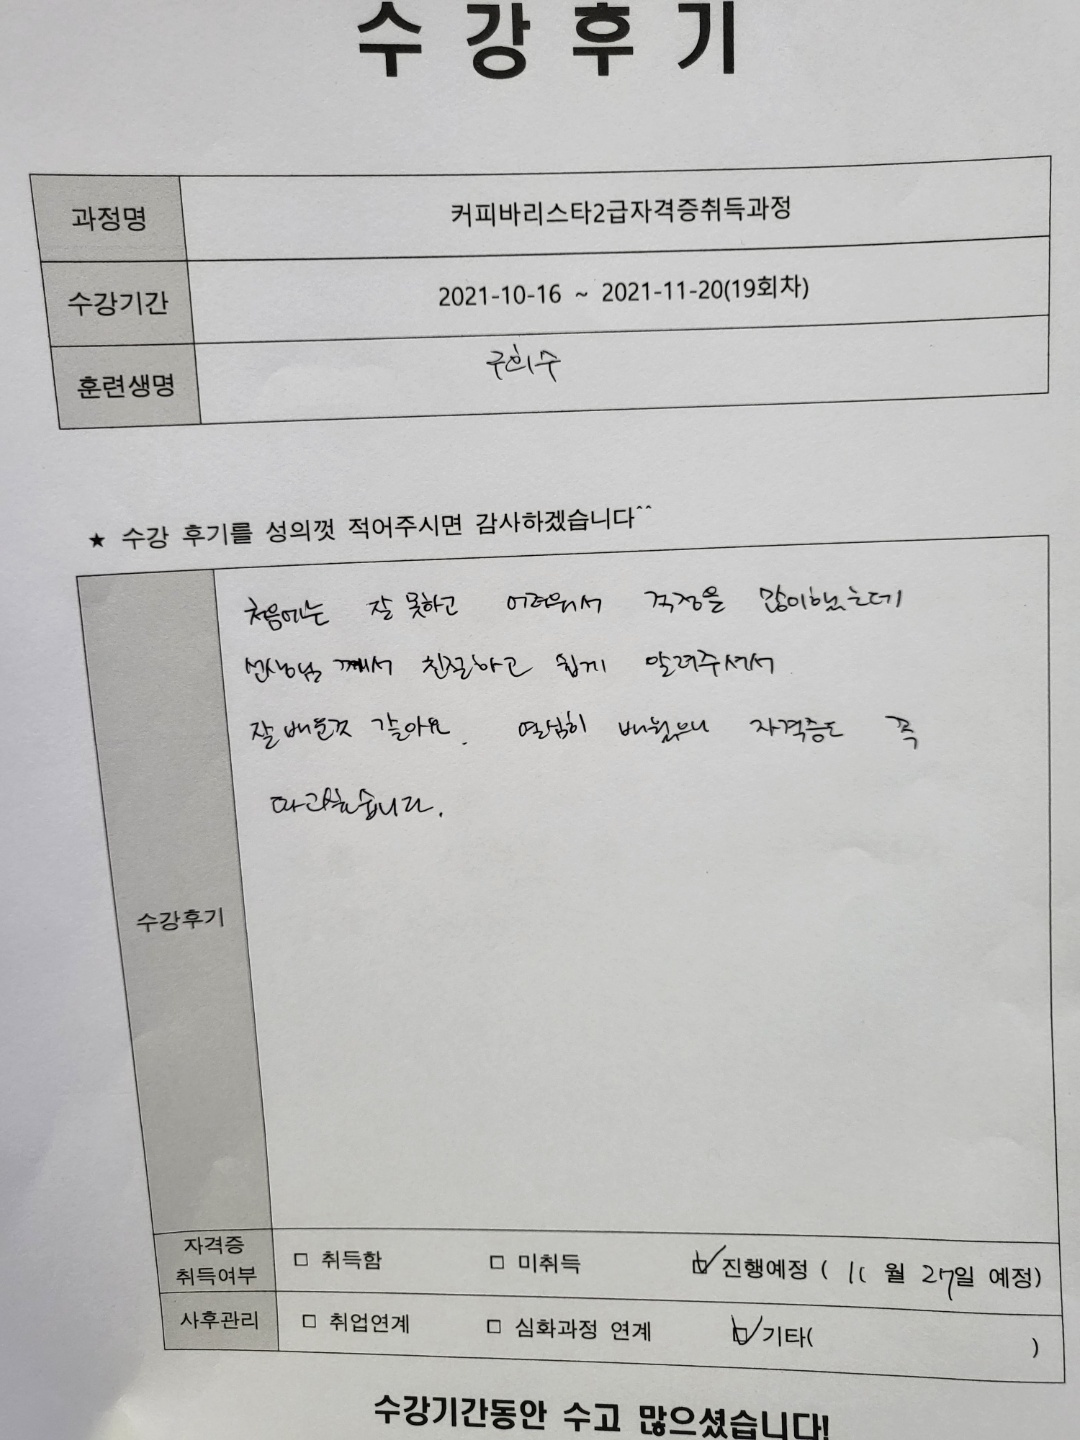 수강후기
과정명 커피바리스타2급자격증취득과정
수강기간 2021-10-16 ~ 2021-11-20(19회차)
훈련생명 구희수
★ 수강 후기를 성의껏 적어주시면 감사하겠습니다^^
처음에는 잘 못하고 어려워서 걱정을 많이했는데
선생님께서 친절하고 쉽게 알려주셔서
잘 배운것 같아요. 열심히 배웠으니 자격증도 꼭
따고싶습니다.
수강후기
자격증
취득여부 □ 취득함 □ 미취득 ☑ 진행예정 ( 11 월 27일 예정)
사후관리 □ 취업연계 □ 심화과정 연계 ☑ 기타( )
수강기간동안 수고 많으셨습니다!